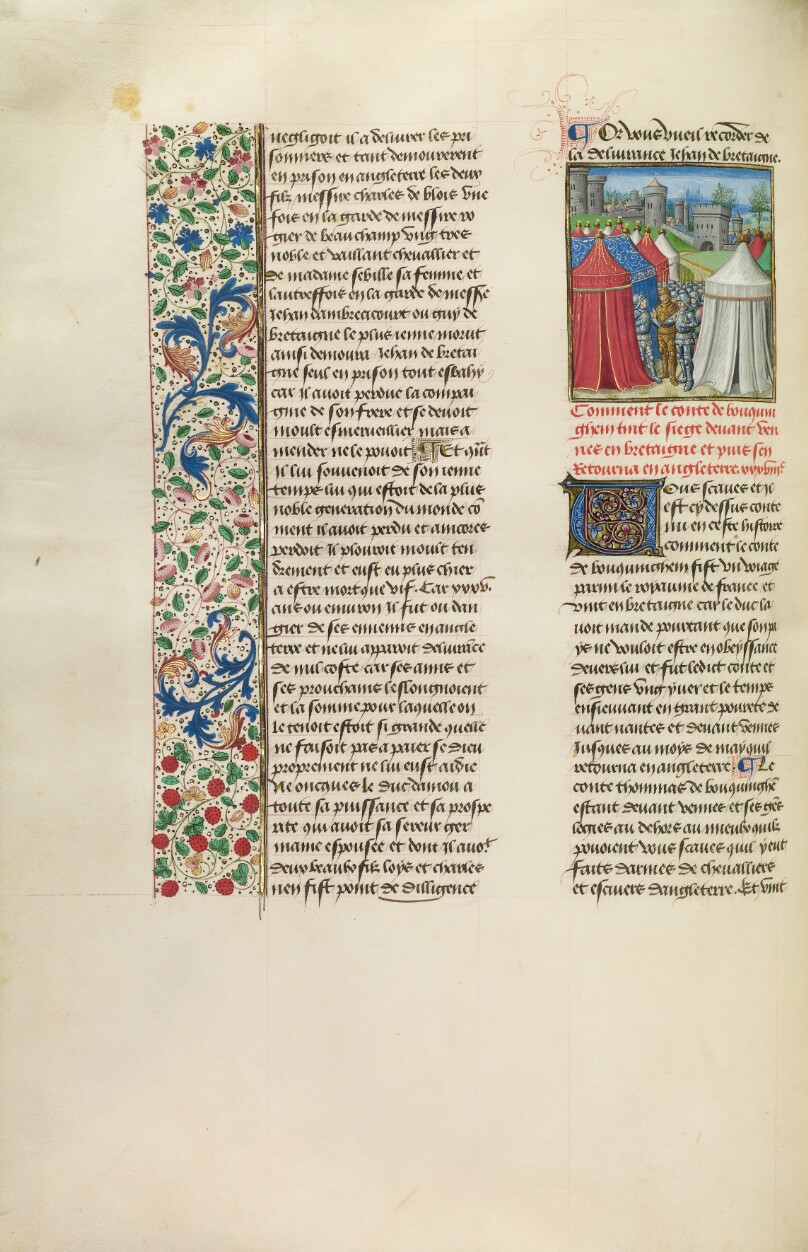 negligoit il a delivrer les pri
sonniers et tant demourerent
en prison en angleterre les deux
filz messire charles de blois une
fois en la garde de messire ro
gier de beauchamp ung tres
noble et vaillant chevallier et
de madame sebille sa femme et
lautreffois en la garde de messire
Jehan dambrecicourt ou guy de
bretaigne le plus ienne morut
ainsi demoura Jehan de bretai
gne seul en prison tout esbahy
car il avoit perdue la compai
gnie de son frere et se devoit
moult esmerveillier mais a
mender ne le povoit Et qnt
il lui souvenoit de son ienne
temps lui qui estoit de la plus
noble generation du monde co
ment il avoit perdu et aincores
perdoit Il plouroit moult ten
drement et eust eu plus chier
a estre mort que vif. Car xxxv.
ans ou environ il fut ou dan
gier de ses ennemis en angle
terre et ne lui apparoit delivrace
de nul coste car ses amis et
ses prouchains lesslongnoient
et la somme pour laquelle on
le tenoit estoit si grande quelle
ne faisoit pas a paier se dieu
proprement ne lui eust aidie
Ne oncques le duc danjou a
toute sa puissance et sa prospe
rite qui avoit sa sereur ger
maine espousee et dont il avoit
deux beaux filz loys et charles
nen fist point de dilligence
Or vous vueil recorder de
la delivrance Jehan de bretaigne.
Comment le conte de bouquin
ghem tint le siege devant ven
nes en bretaigne et puis sen
Retourna en angleterre.
Vous scaves et il
est cy dessus conte
nu en ceste histoire
comment le conte
de bouquinghem fist un voiage
parmi le royaume de france et
vint en bretaigne car le duc la
voit mande pourtant que son pa
ys ne vouloit estre en obeyssance
devers lui et fut ledict conte et
ses gens ung yver et le temps
ensieuvant en grant povrete de
vant nantes et devant vennes
Jusques au moys de may quil
retourna en angleterre. Le
conte thommas de bouquinghe
estant devant vennes et ses ges
logies au dehors au mieulx quilz
povoient vous scaves quil y eut
faits darmes de chevalliers
et escuiers dangleterre. Et vint